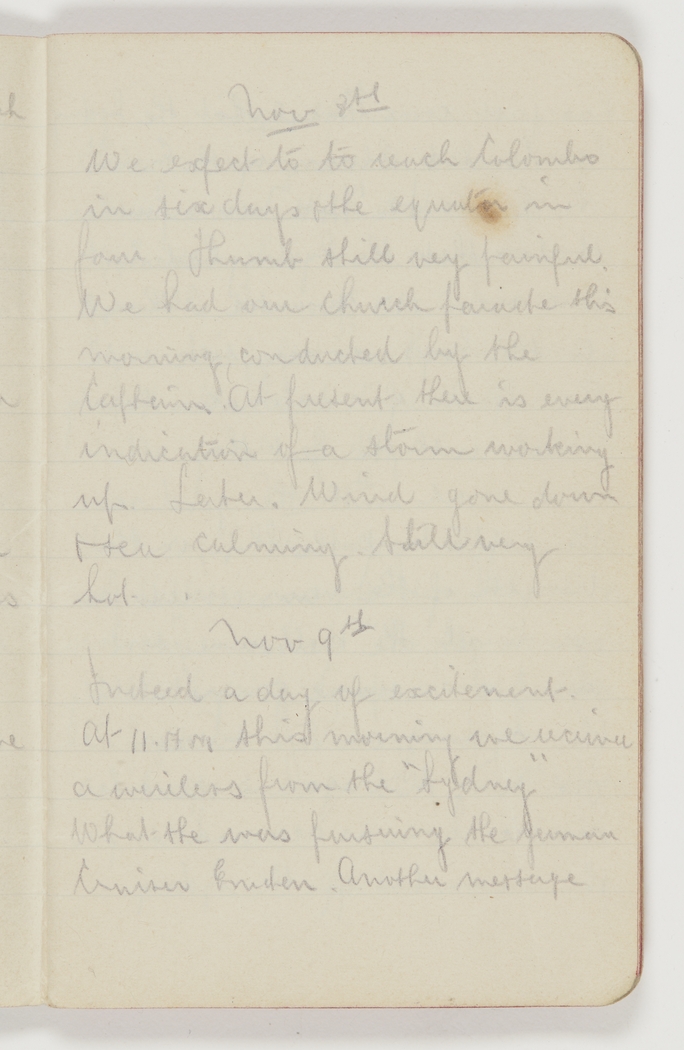 Nov 8th
We expect to to reach Colombo
in six days & the equator in
four. Thumb still vey painful.
We had our church parade this
morning, conducted by the
Captain. At present there is every
indication of a storm working
up. Later. Wind gone down
& sea calming. Still very
hot.
Nov 9th
Indeed a day of excitement.
At 11. AM this morning we receive
a wireless from the "Sydney"
What she was pursuing the german
Cruiser Emden. Another message